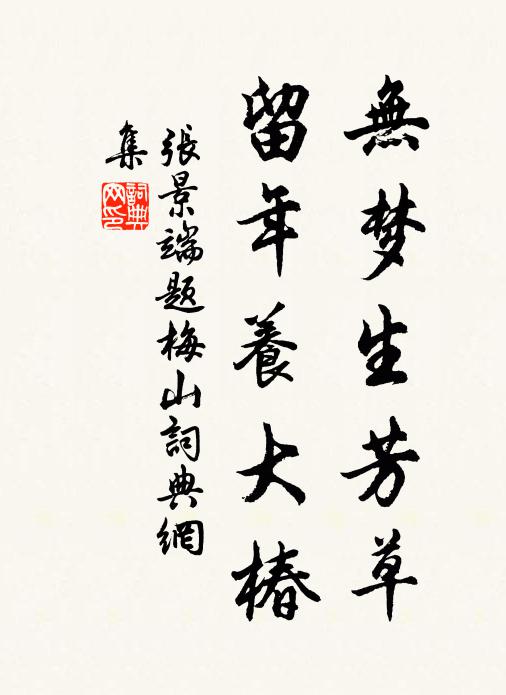 無梦生芳草
留年養大椿
張景端題梅山詞典網
集
詞典网印